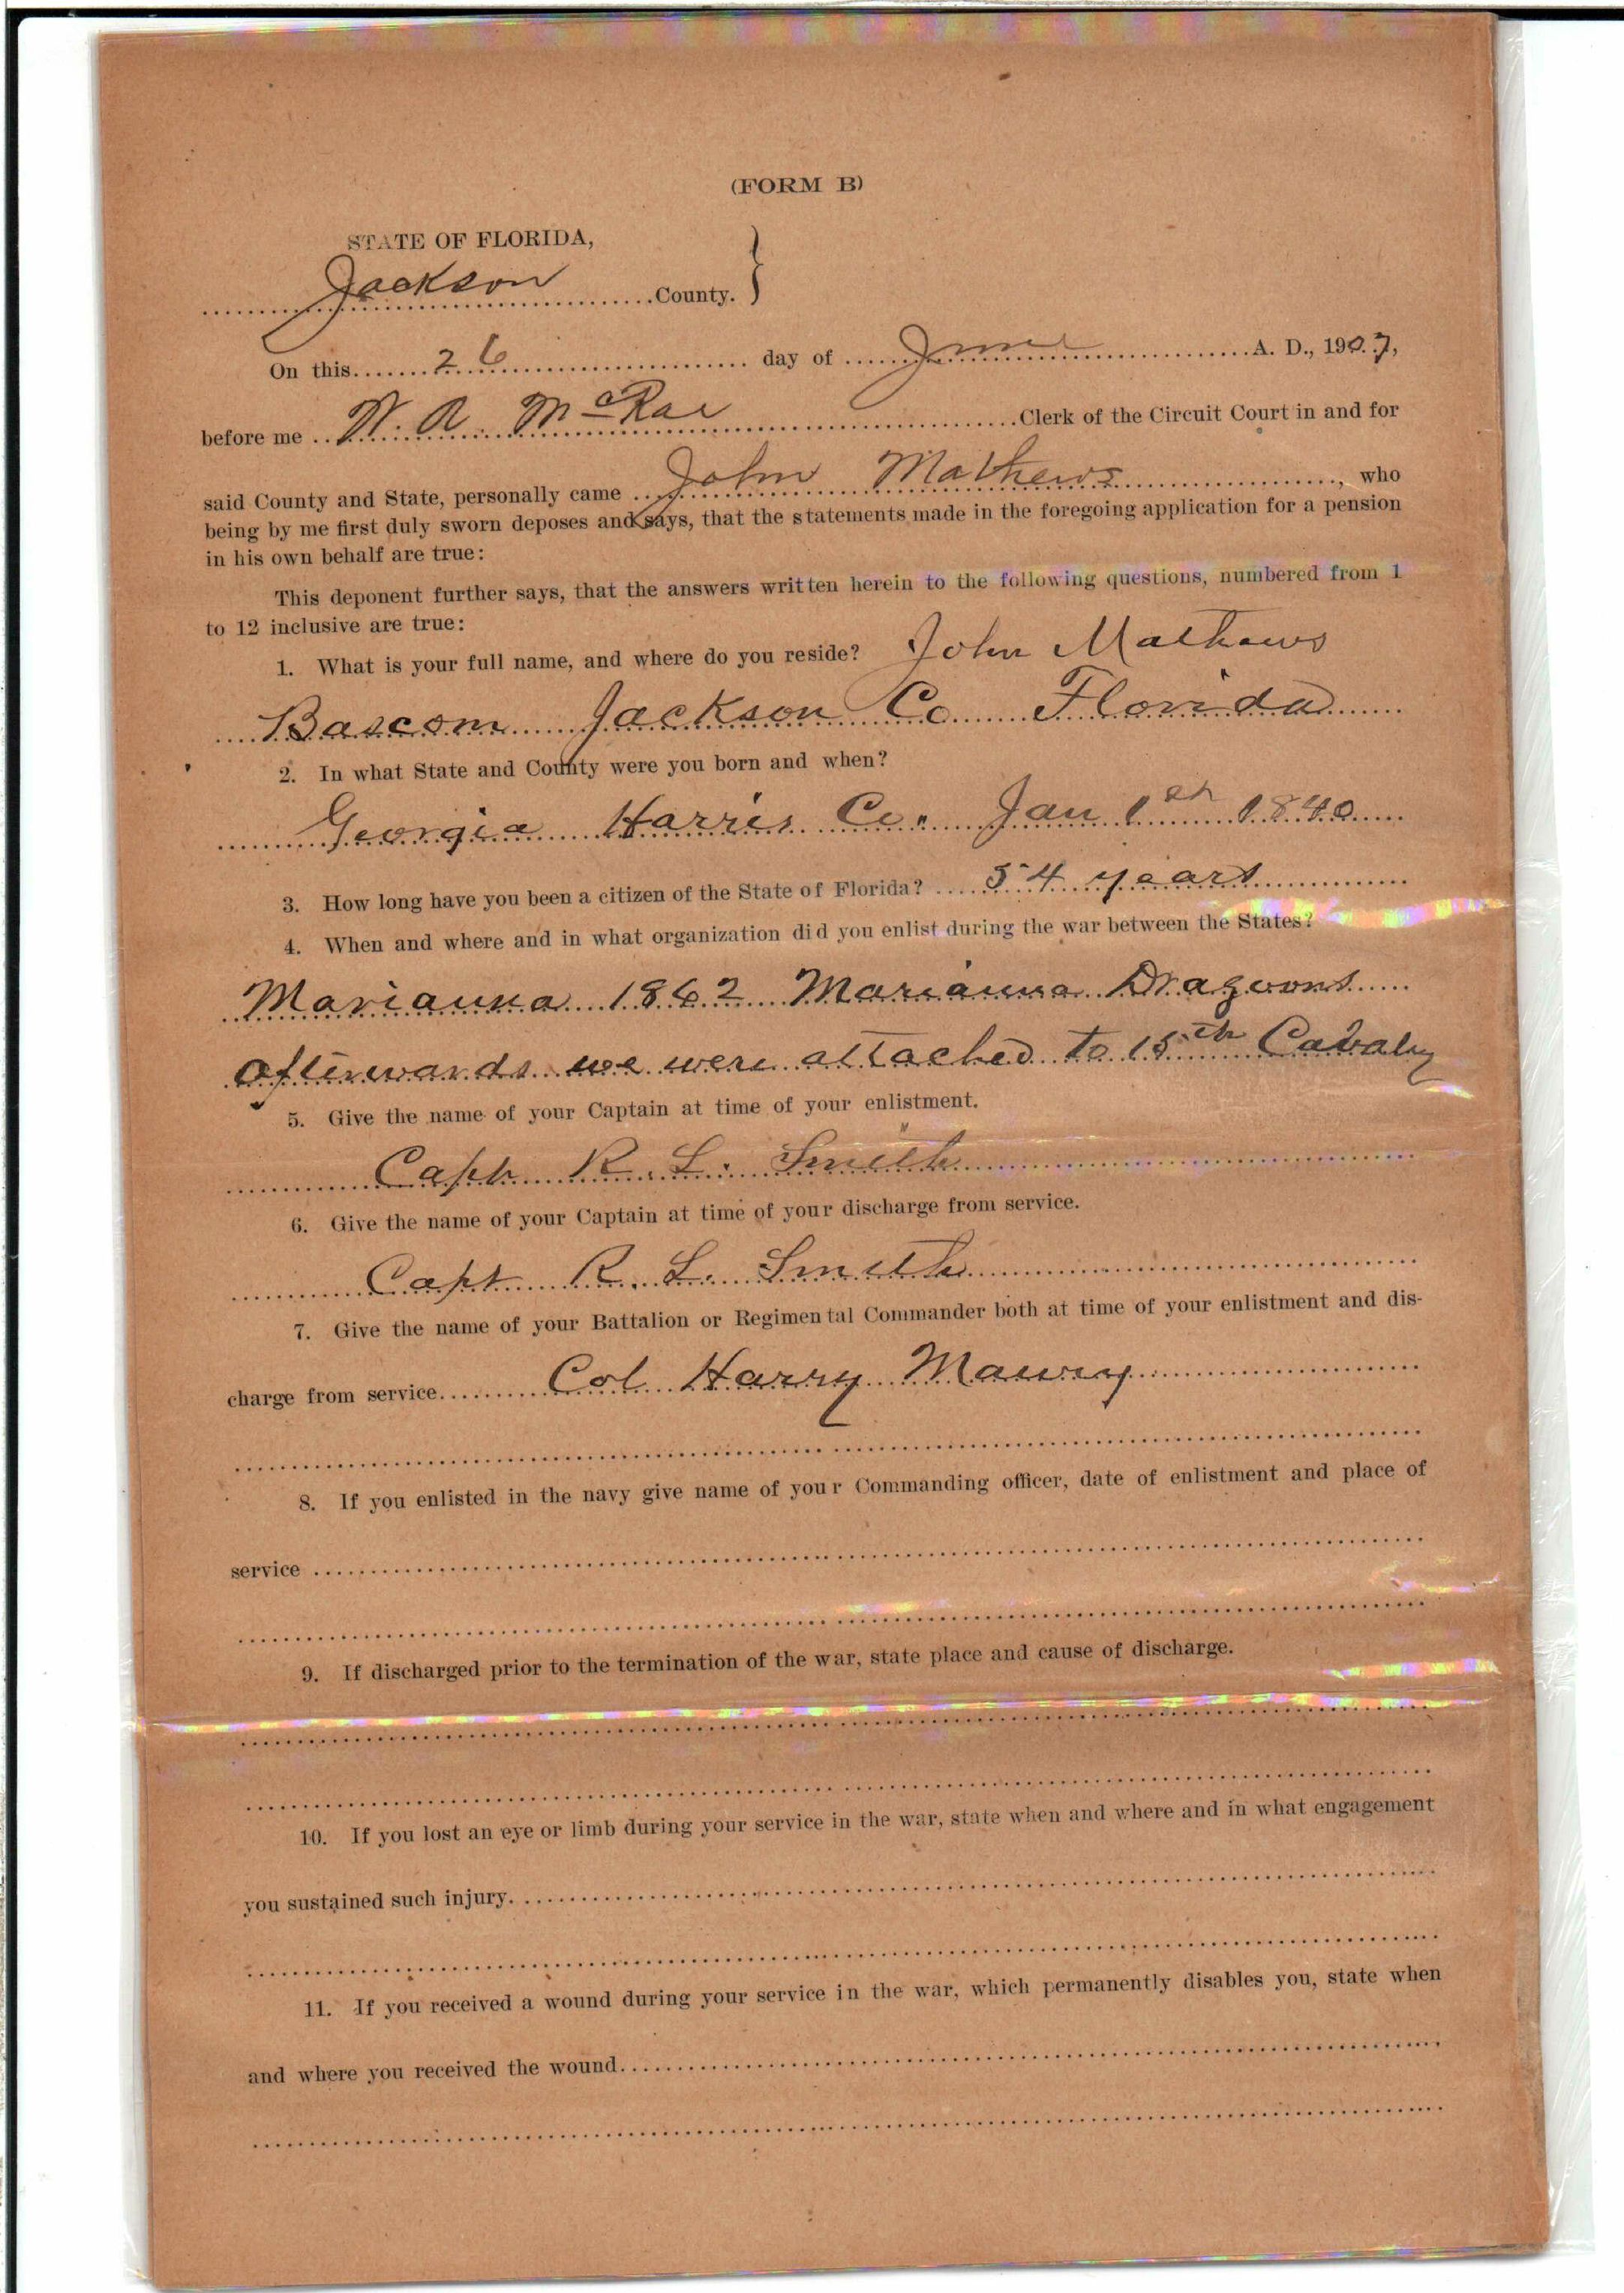 (FORM B)
STATE OF FLORIDA,
Jackson County. }
On this 26 day of June A. D., 1907,
before me W. A. McRae Clerk of the Circuit Court in and for
said County and State, personally came John Mathews, who
being by me first duly sworn deposes and says, that the statements made in the foregoing application for a pension
in his own behalf are true:
This deponent further says, that the answers written herein to the following questions, numbered from 1
to 12 inclusive are true:
1. What is your full name, and where do you reside? John Mathews
Bascom Jackson Co Florida
2. In what State and County were you born and when?
Georgia Harris Co. Jan 1th 1840
3. How long have you been a citizen of the State of Florida? 54 years
4. When and where and in what organization did you enlist during the war between the States?
Marianna 1862 Marianna Dragoons
afterwards we were attached to 15th Cavalry
5. Give the name of your Captain at time of your enlistment.
Capt R. L. Smith
6. Give the name of your Captain at time of your discharge from service.
Capt R. L. Smith
7. Give the name of your Battalion or Regimental Commander both at time of your enlistment and dis-
charge from service Col Harry Maury
8. If you enlisted in the navy give name of your Commanding officer, date of enlistment and place of
service
9. If discharged prior to the termination of the war, state place and cause of discharge.
10. If you lost an eye or limb during your service in the war, state when and where and in what engagement
you sustained such injury.
11. If you received a wound during your service in the war, which permanently disables you, state when
and where you received the wound